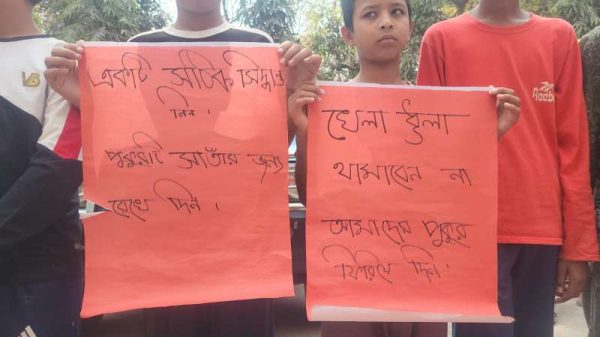 একটি সঠিক সিদ্ধান্ত
নিন।
পুকুরটি সাতাঁর জন্য
রেখে দিন।
খেলা ধুলা
থামাবেন না
আমাদের পুকুর
ফিরিয়ে দিন।
Reebok